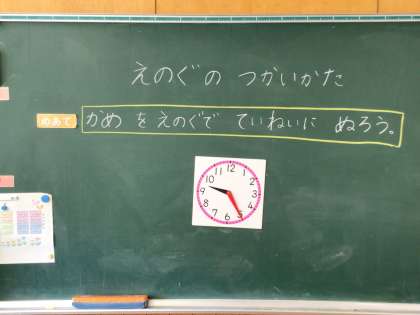 えのぐの つかいかた
めあて
かめ を えのぐで ていねいに ぬろう。
12
1
2
3
4
5
6
7
8
9
10
11